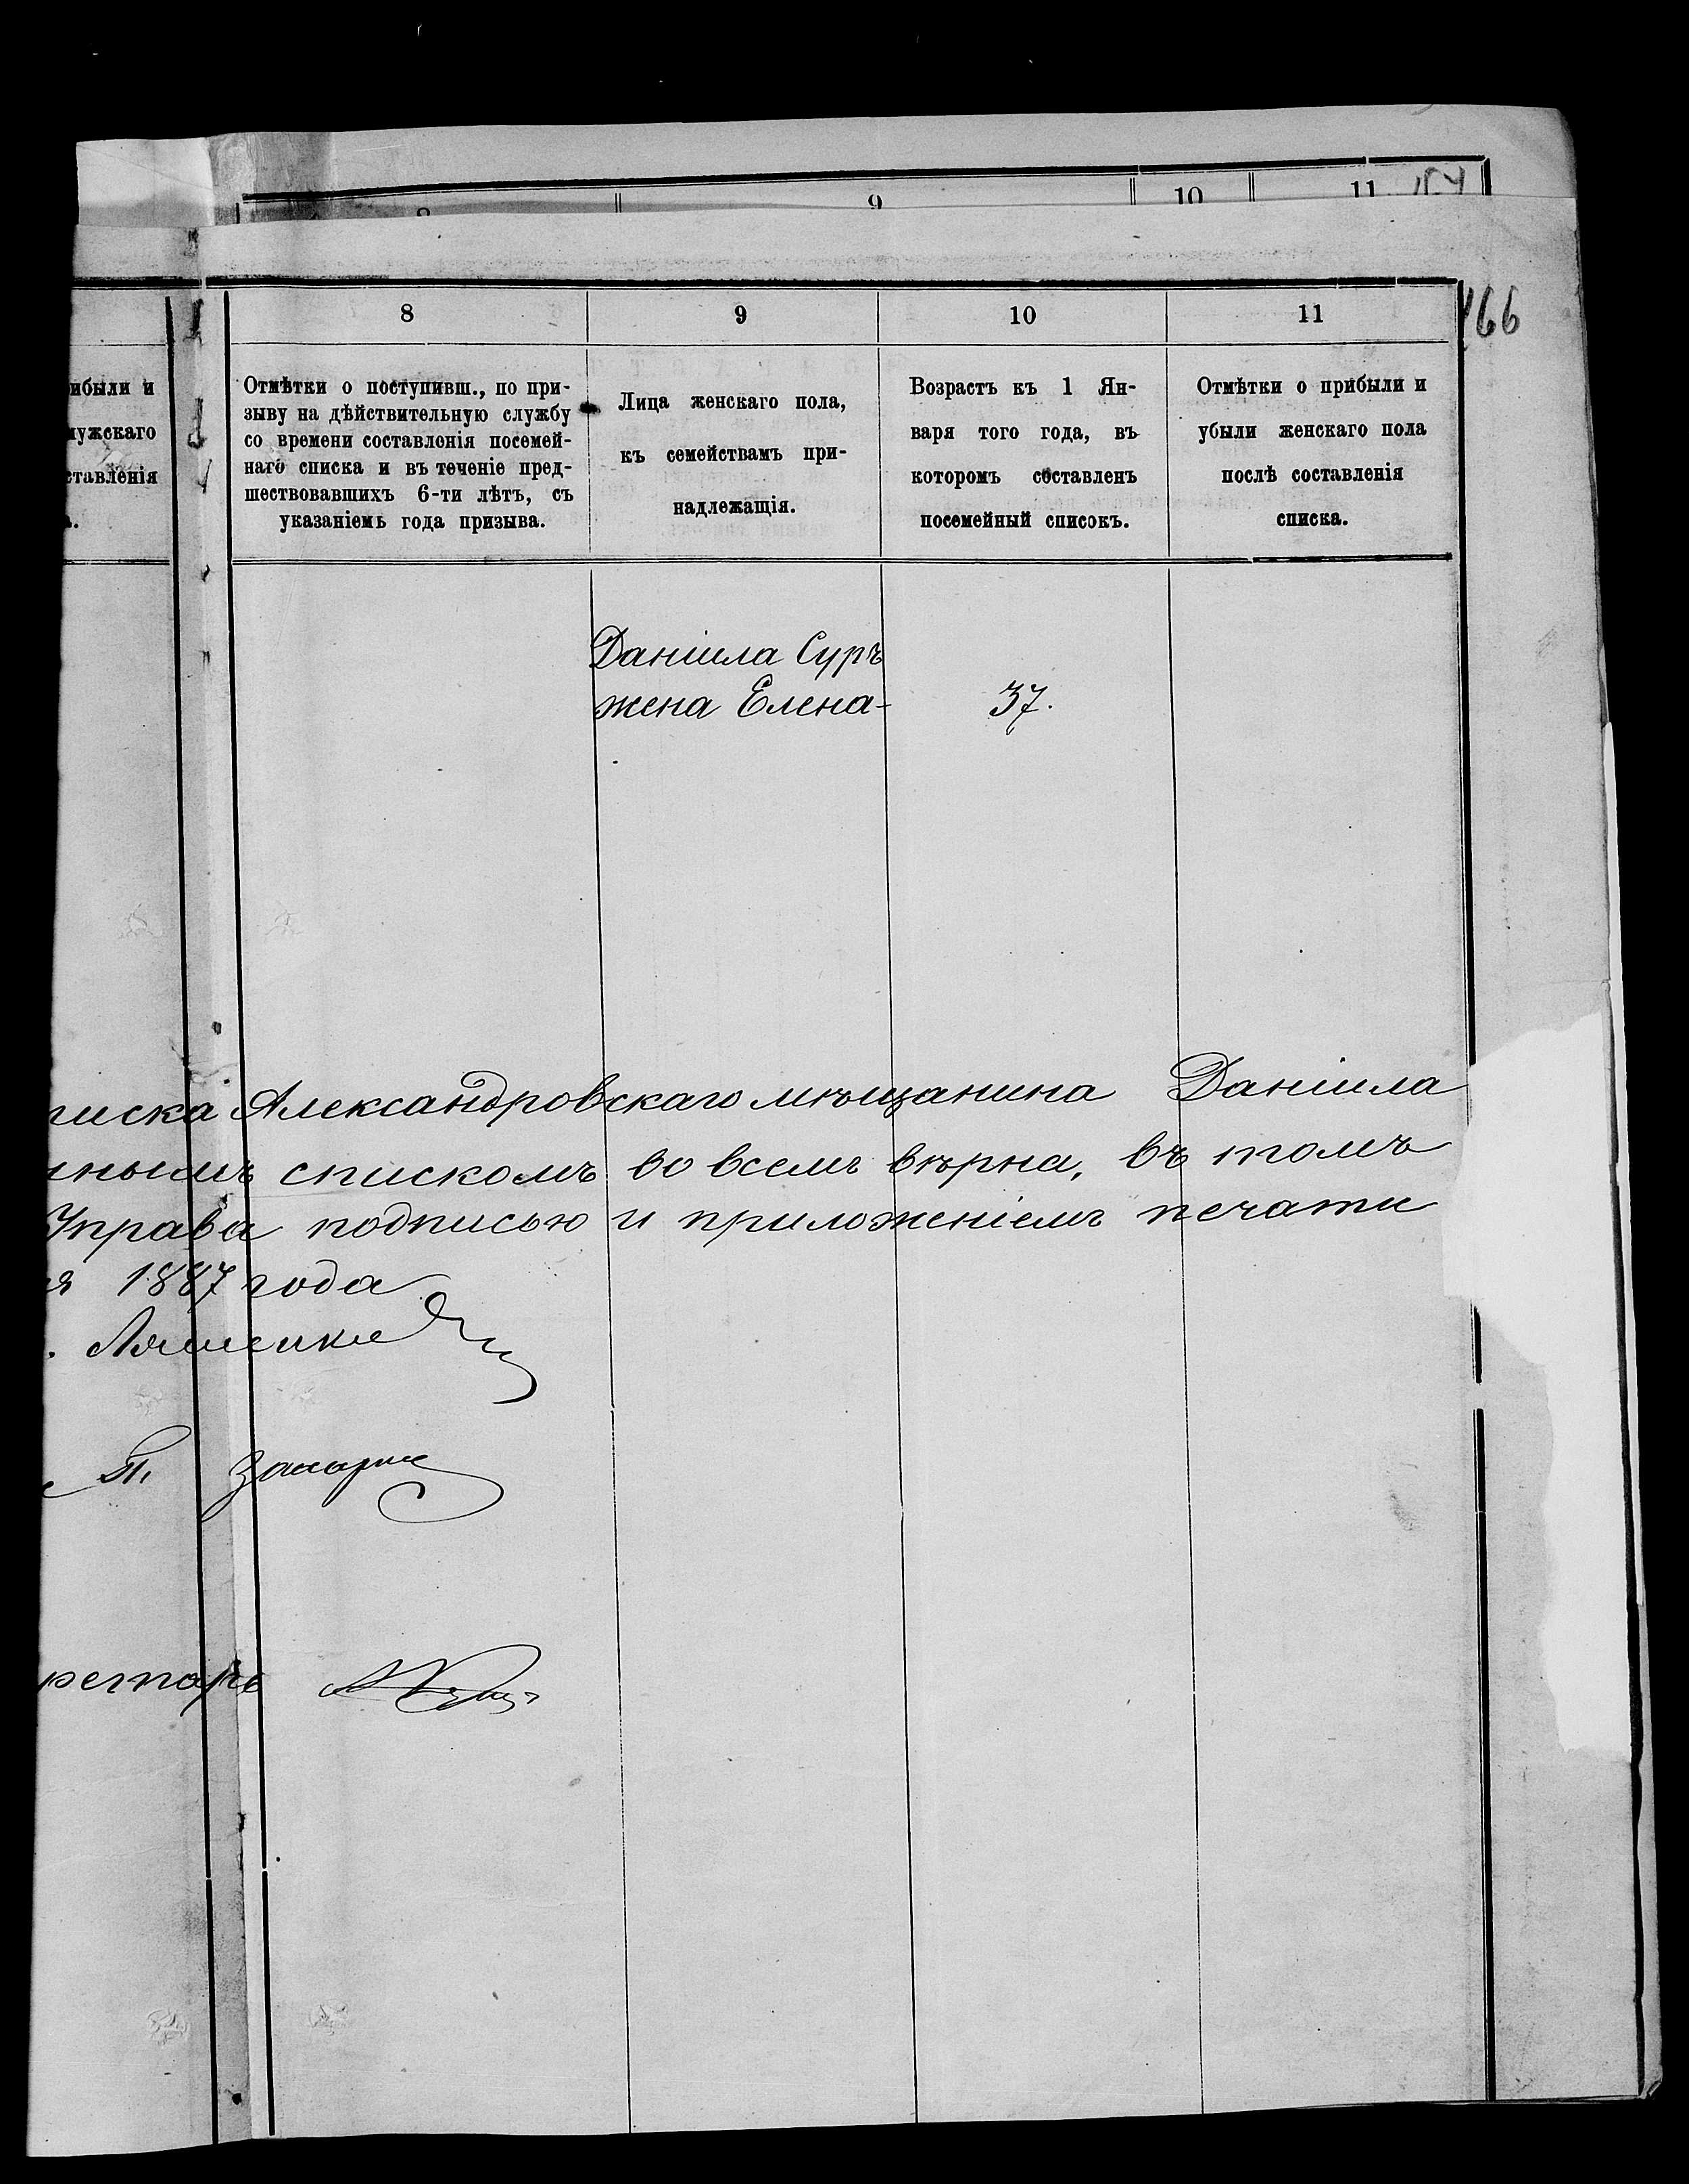 9 10 11
8 9 10 11
166
ибыли и
мужскаго
ставленія
а.
Отмѣтки о поступивш., по при-
зыву на дѣйствительную службу
со времени составленія посемей-
наго списка и въ теченіе пред-
шествовавшихъ 6-ти лѣтъ, съ
указаніемъ года призыва.
Лица женскаго пола,
къ семействамъ при-
надлежащія.
Возрастъ къ 1 Ян-
варя того года, въ
которомъ составленъ
посемейный списокъ.
Отмѣтки о прибыли и
убыли женскаго пола
послѣ составленія
списка.
Даніила Суръ
жена Елена- 37.
писка Александровскаго мѣщанина Даніила
ннымъ спискомъ во всемъ вѣрна, въ томъ
Управа подписью и приложеніемъ печати
я 1887 года
П.
ретарь